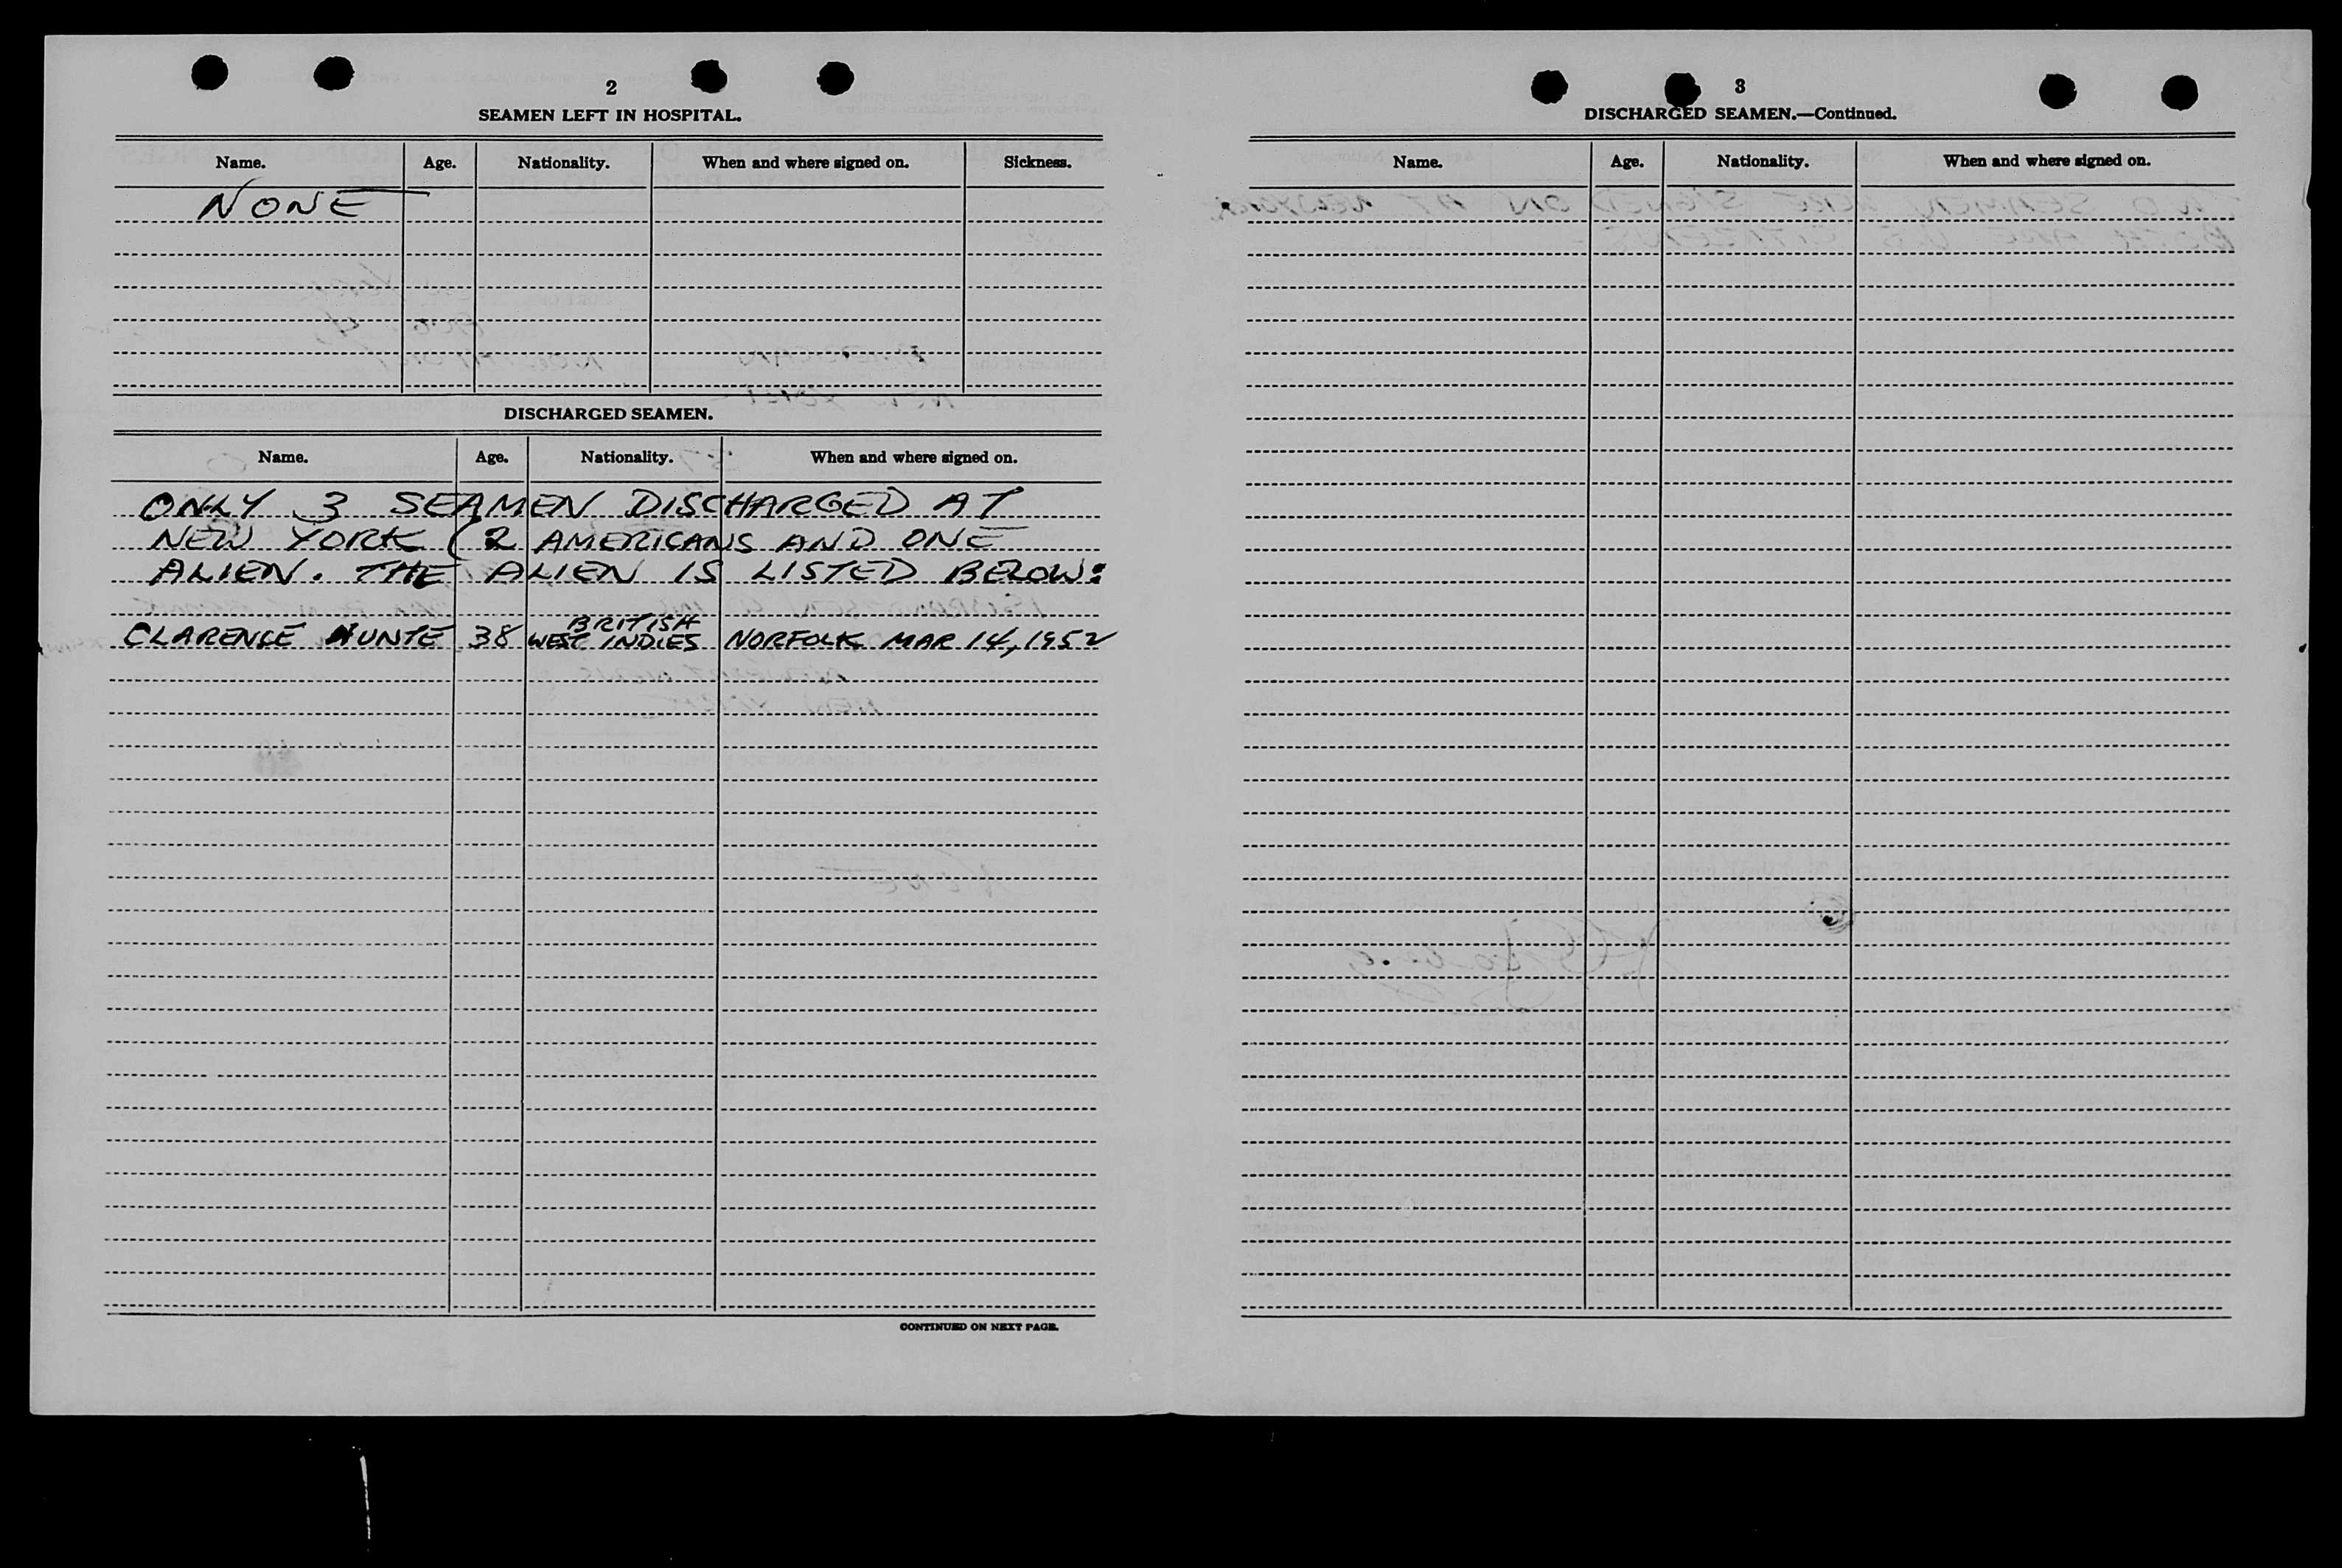 2
SEAMEN LEFT IN HOSPITAL.
Name. Age. Nationality. When and where signed on. Sickness.
NONE
DISCHARGED SEAMEN.
Name. Age. Nationality. When and where signed on.
ONLY 3 SEAMEN DISCHARGED AT
NEW YORK (2 AMERICANS AND ONE
ALIEN. THE ALIEN IS LISTED BELOW:
CLARENCE HUNTE 38 BRITISH WEST INDIES NORFOLK MAR 14, 1952
CONTINUED ON NEXT PAGE.
3
DISCHARGED SEAMEN.—Continued.
Name. Age. Nationality. When and where signed on.